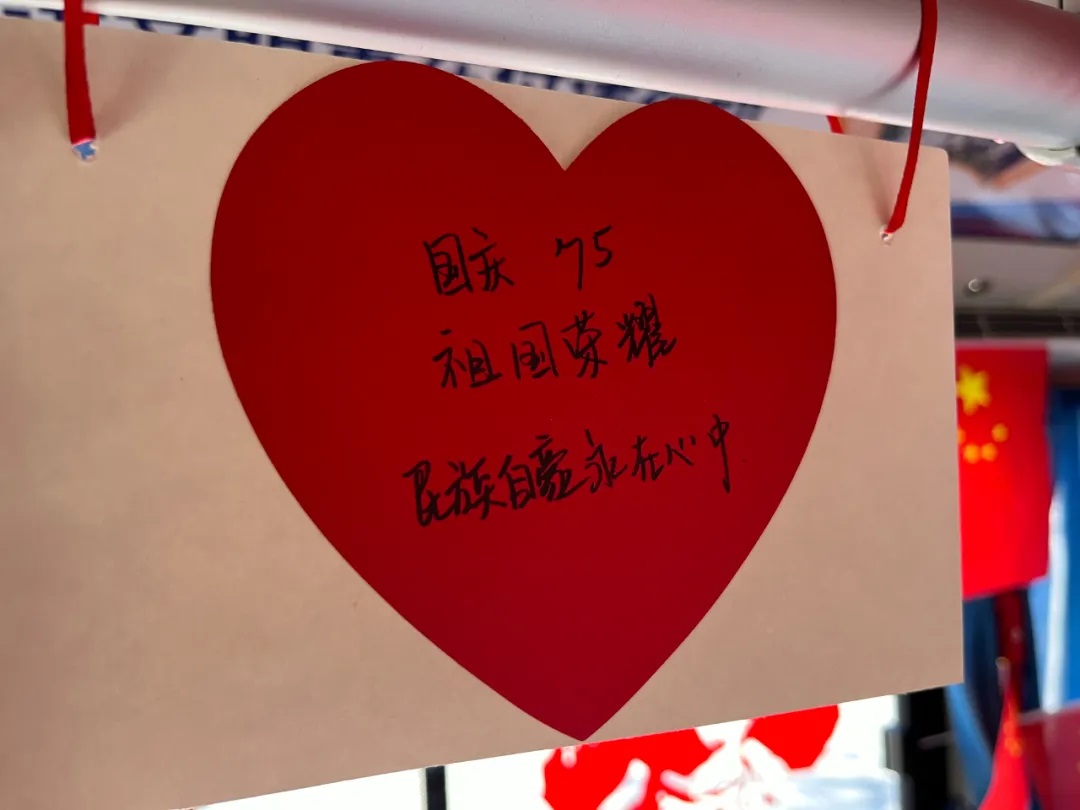 国庆 75
祖国荣耀
民族自豪永在心中